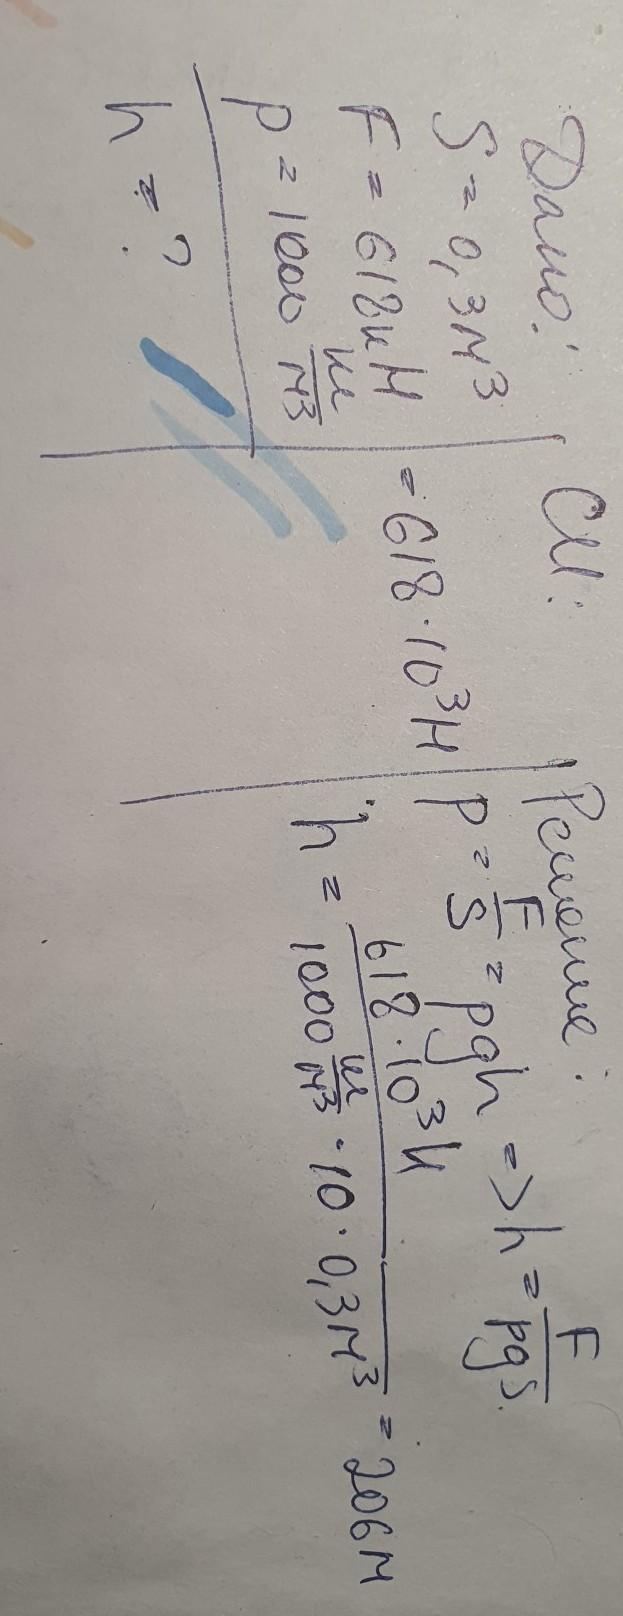 Дано:
S = 0,3 м³
F = 618 кН
p = 1000 кг/м³
h = ?
СИ:
= 618 · 10³ Н
Решение:
p = F/S = pgh => h = F/pgs.
h = 618 · 10³ Н / 1000 кг/м³ · 10 · 0,3 м³ = 206 м